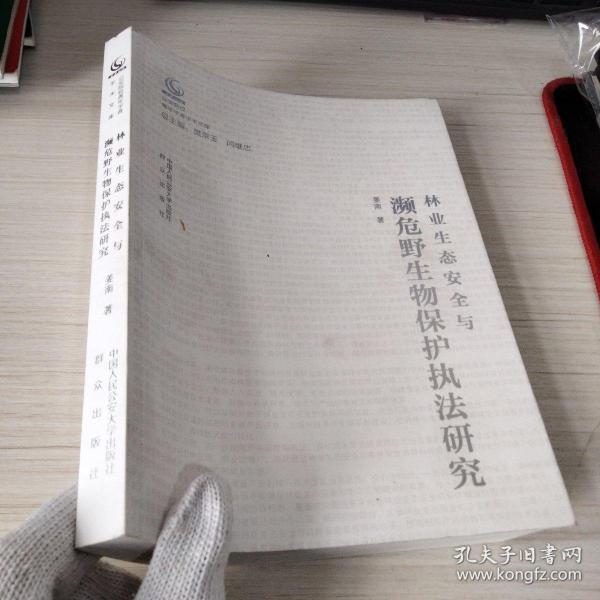 林业生态安全与
濒危野生物保护执法研究
姜南 著
中国人民公安大学出版社
群众出版社
林业生态安全与
濒危野生物保护执法研究
姜南 著
中国人民公安大学出版社
群众出版社
孔夫子旧书网
www.kongfz.com